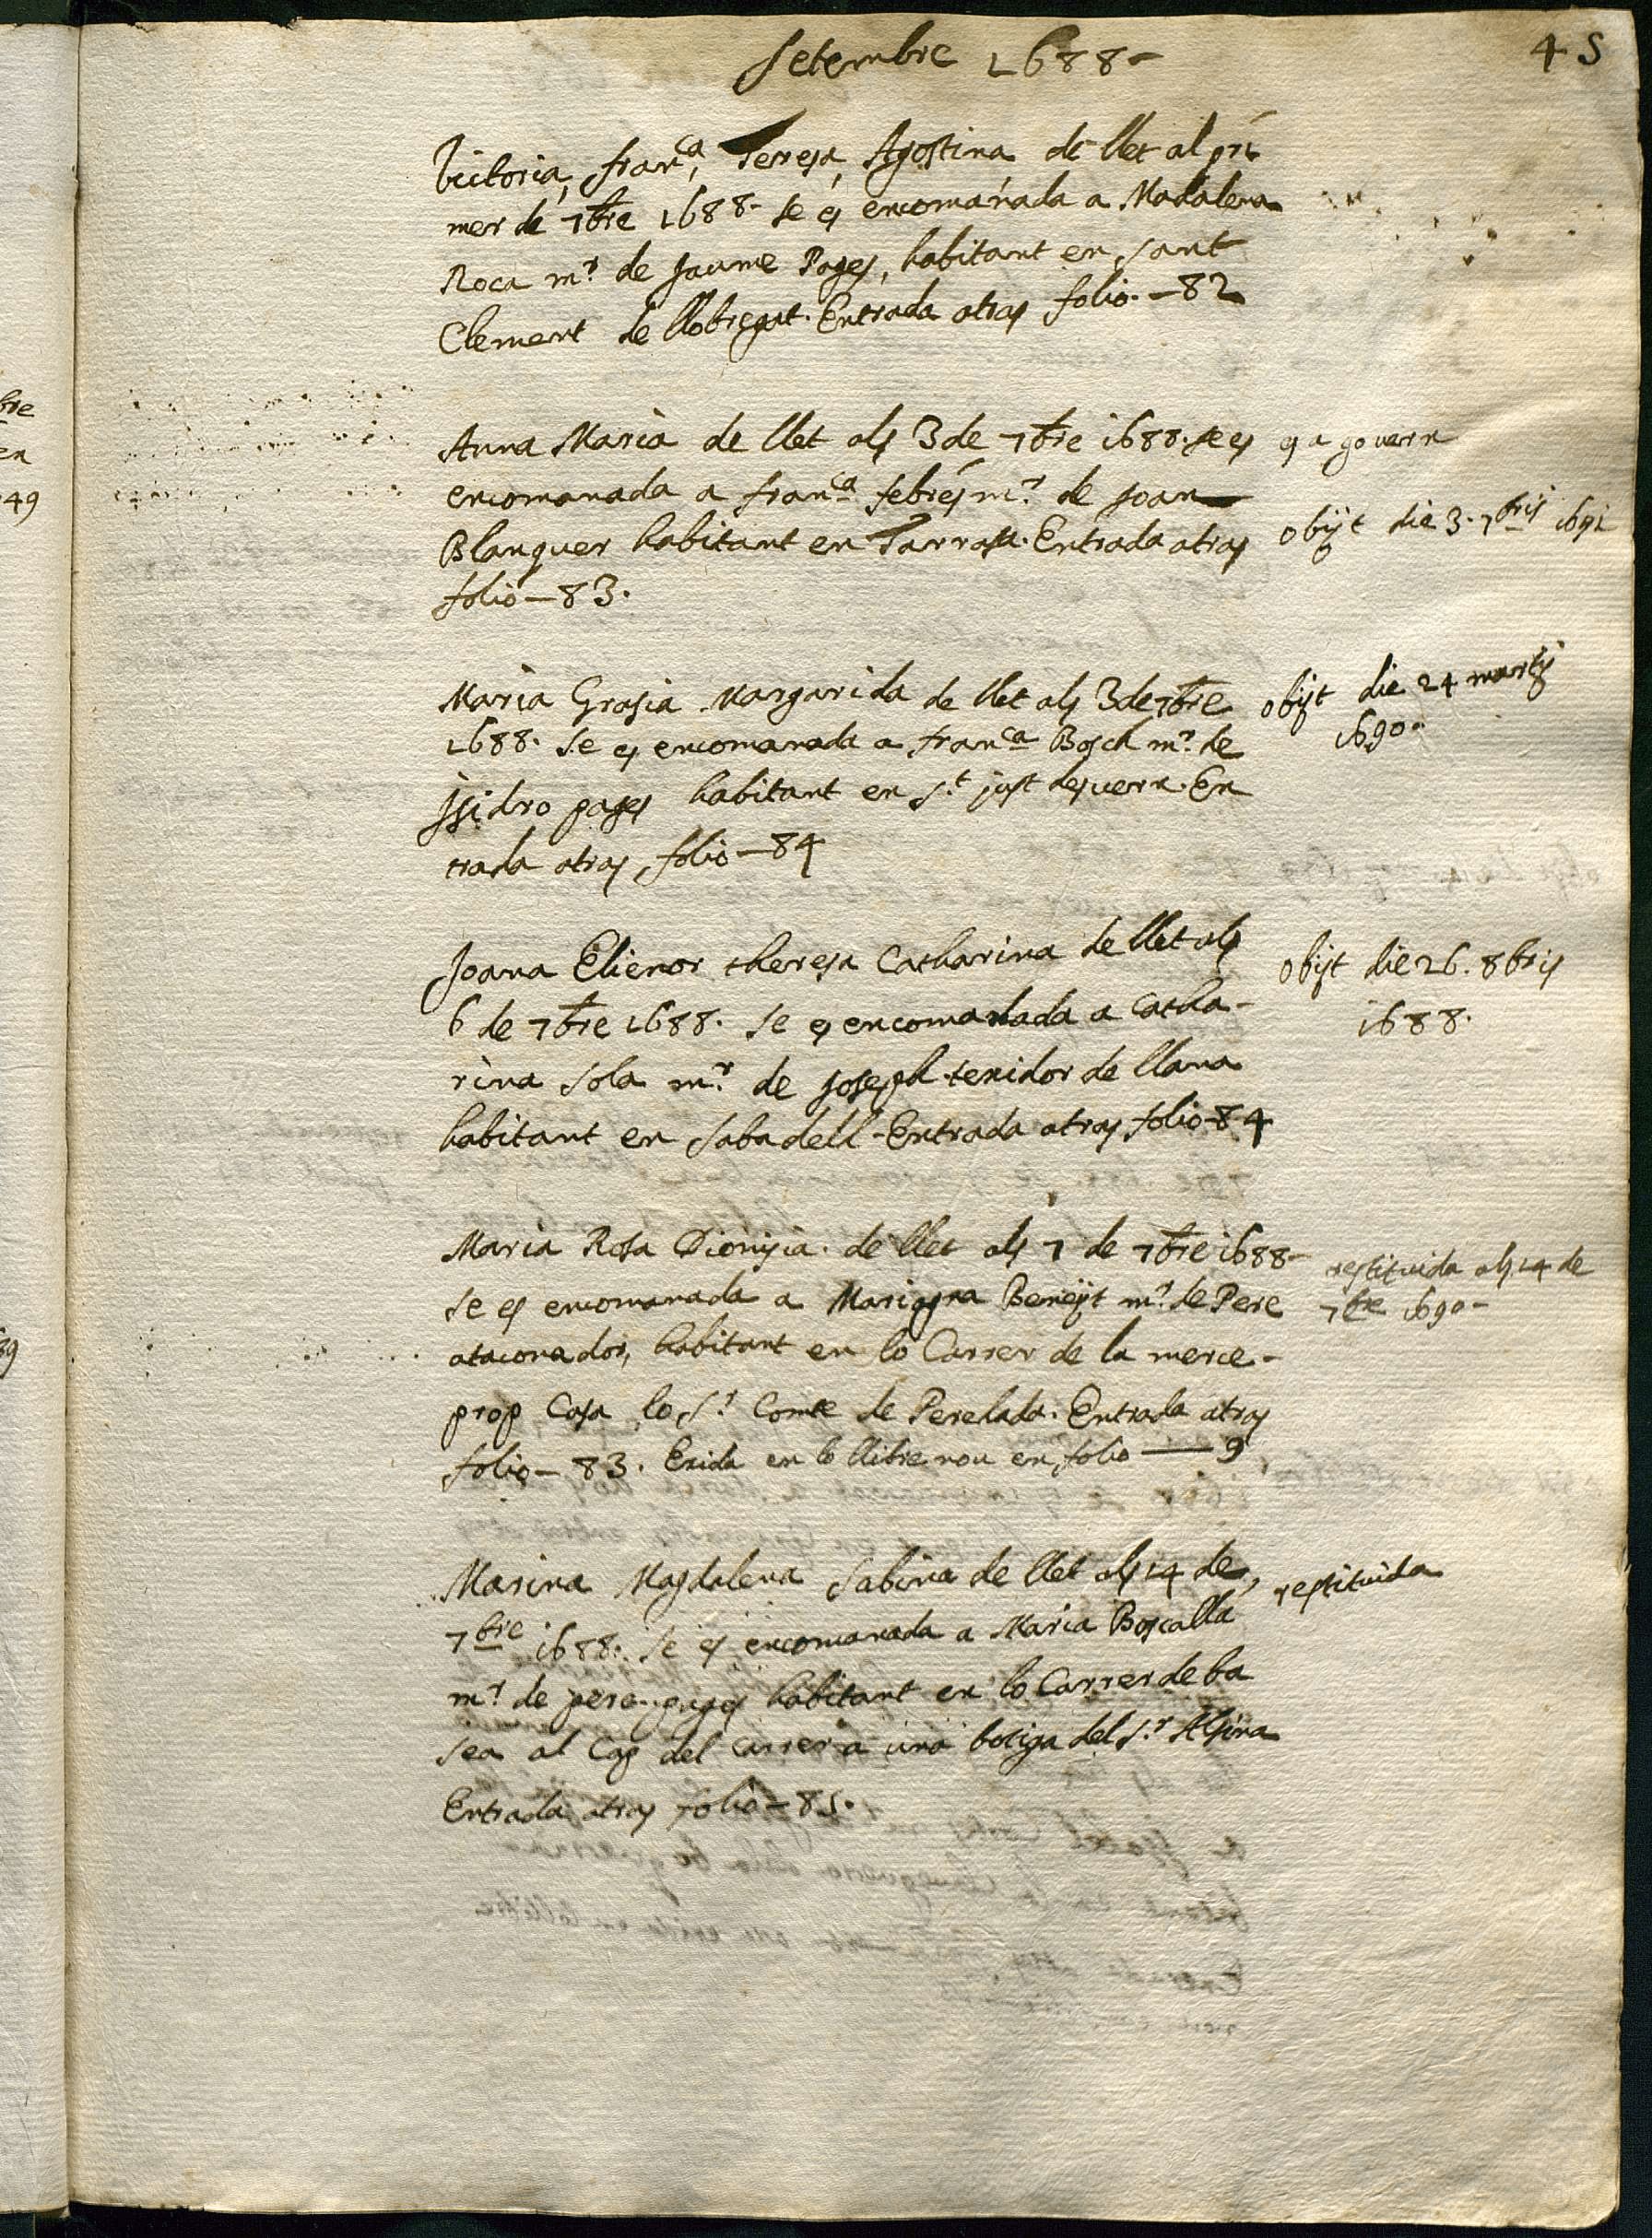 Setembre 1688-
45
Victoria, Fran.ca, Teresa, Agostina de llet al pri
mer de 7bre 1688- se es encomanada a Madalena
Roca m.r de Jaume Pages, habitant en Sant
Clement de llobregat. Entrada atras folio.-82
Anna Maria de llet als 3 de 7bre 1688. se es
encomanada a fran.ca febres m.r de Joan
Blanquer habitant en Tarrasa. Entrada atras
folio-83.
es a govern
obijt die 3. 7bris 1691
Maria Grasia Margarida de llet als 3 de 7bre
1688. se es encomanada a fran.ca Bosch m.r de
Isidro pages habitant en S.t just desvern. En
trada atras folio-84
obijt die 24 martij
1690.
Joana Elienor theresa Catharina de llet als
6 de 7bre 1688. se es encomanada a Catha-
rina Sola m.r de Joseph texidor de llana
habitant en Sabadell-Entrada atras folio-84
obijt die 26. 8bris
1688.
Maria Rosa Dionisia. de llet als 7 de 7bre 1688-
se es encomanada a Mariagna Beneijt m.r de Pere
ataconador, habitant en lo Carrer de la merce-
prop Casa lo S.r Comte de Perelada. Entrada atras
folio-83. Exida en lo llibre nou en folio — 9
restituida als 14 de
7bre 1690-
Marina Magdalena Sabina de llet als 14 de
7bre 1688. se es encomanada a Maria Boscalla
m.r de pere pages habitant en lo Carrer de ba
sea al Cap del carrer a una botiga del S.r Alsina
Entrada atras folio-85.
restituida
bre
en
49